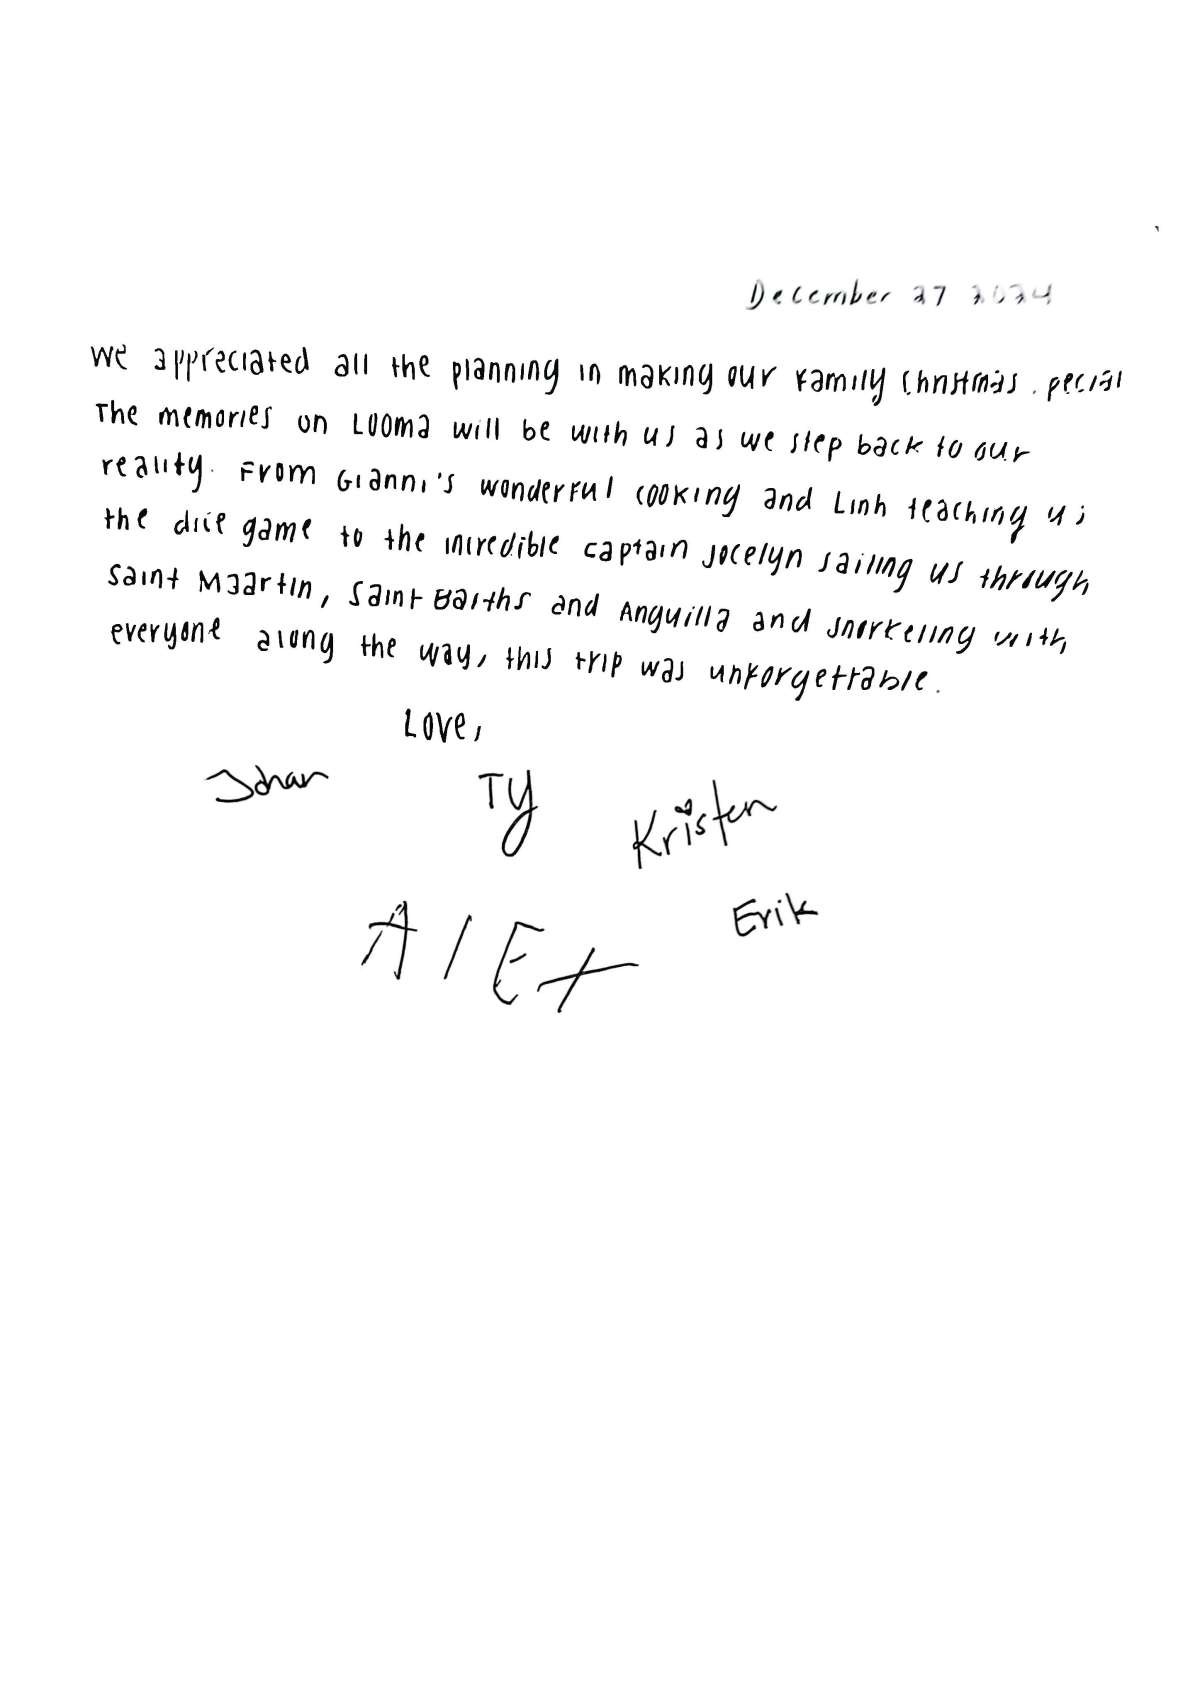 December 27 2024
We appreciated all the planning in making our family Christmas special
The memories on LOOMA will be with us as we step back to our
reality. From Gianni's wonderful cooking and Linh teaching us
the dice game to the incredible captain Jocelyn sailing us through
Saint Maartin, Saint Barths and Anguilla and snorkeling with
everyone along the way, this trip was unforgettable.
Love,
Johan Ty Kristen
Alex Erik